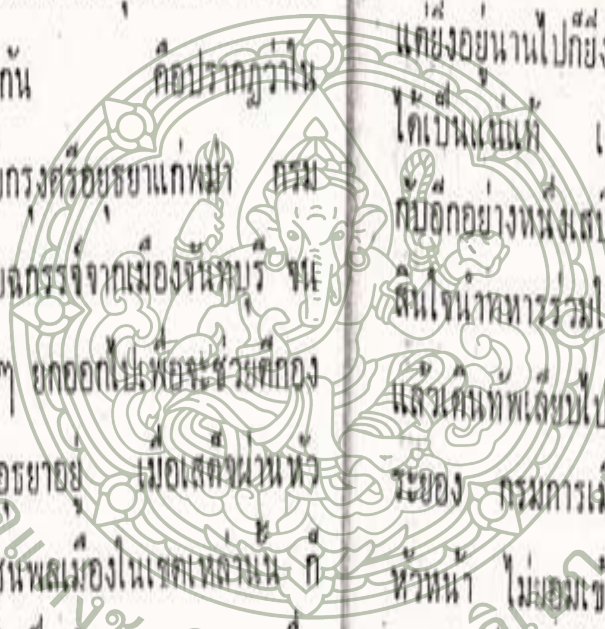 กัน คือปรากฏว่าใน
กรุงศรีอยุธยาแก่พม่า กรม
ฉกรรจ์จากเมืองจันทบุรี จน
ๆ ยกออกไปเพื่อจะช่วยตีกอง
อยุธยาอยู่ เมื่อเสด็จผ่านหัว
ชนพลเมืองในเขตเหล่านั้น ก็
แต่ยิ่งอยู่นานไปก็ยิ่ง
ได้เป็นแน่แท้
กับอีกอย่างหนึ่งเสบ
สินใจนำทหารร่วมใ
แล้วเดินทัพเลียบไป
ระยอง กรมการเมื
หัวหน้า ไม่ยอมเข้